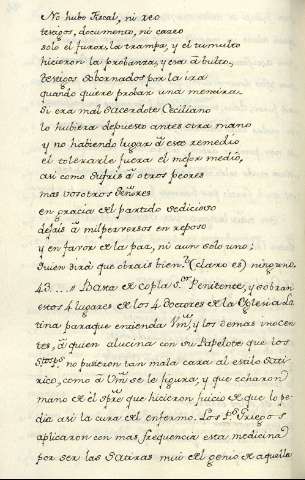 No hubo Fiscal, ni reo
testigos, documento, ni careo
solo el furor, la trampa, y el tumulto
hicieron la probanza, y esa â bulto,
testigos sobornados por la ira
quando quiere probar una mentira.
Si era mal Sacerdote Ceciliano
lo hubiera depuesto antes otra mano
y no habiendo lugar â este remedio
el tolerarle fuera el mejor medio,
asi como sufris â otros peores
mas vosotros Señores
en gracia del partido sedicioso
dejais â mil perversos en reposo
y en favor de la paz, ni aun solo uno;
Quien dirà que obrais bien? (claro es) ninguno.
43.... Basta de copla S.or Penitente, y sobran
estos 4 lugares de los 4 Doctores de la Yglesia La
tina paraque entienda Vm, y los demas inocen
tes, â quien alucina con su Papelote que los
S.tos P.s no pusieron tan mala cara al estilo Sati
rico, como â Vm se le figura, y que echaron
mano de el spre que hicieron juicio de que lo pe
dia asi la cura del enfermo. Los P.s Griegos
aplicaron con mas frequencia esta medicina
por ser las Satiras mui del genio de aquella